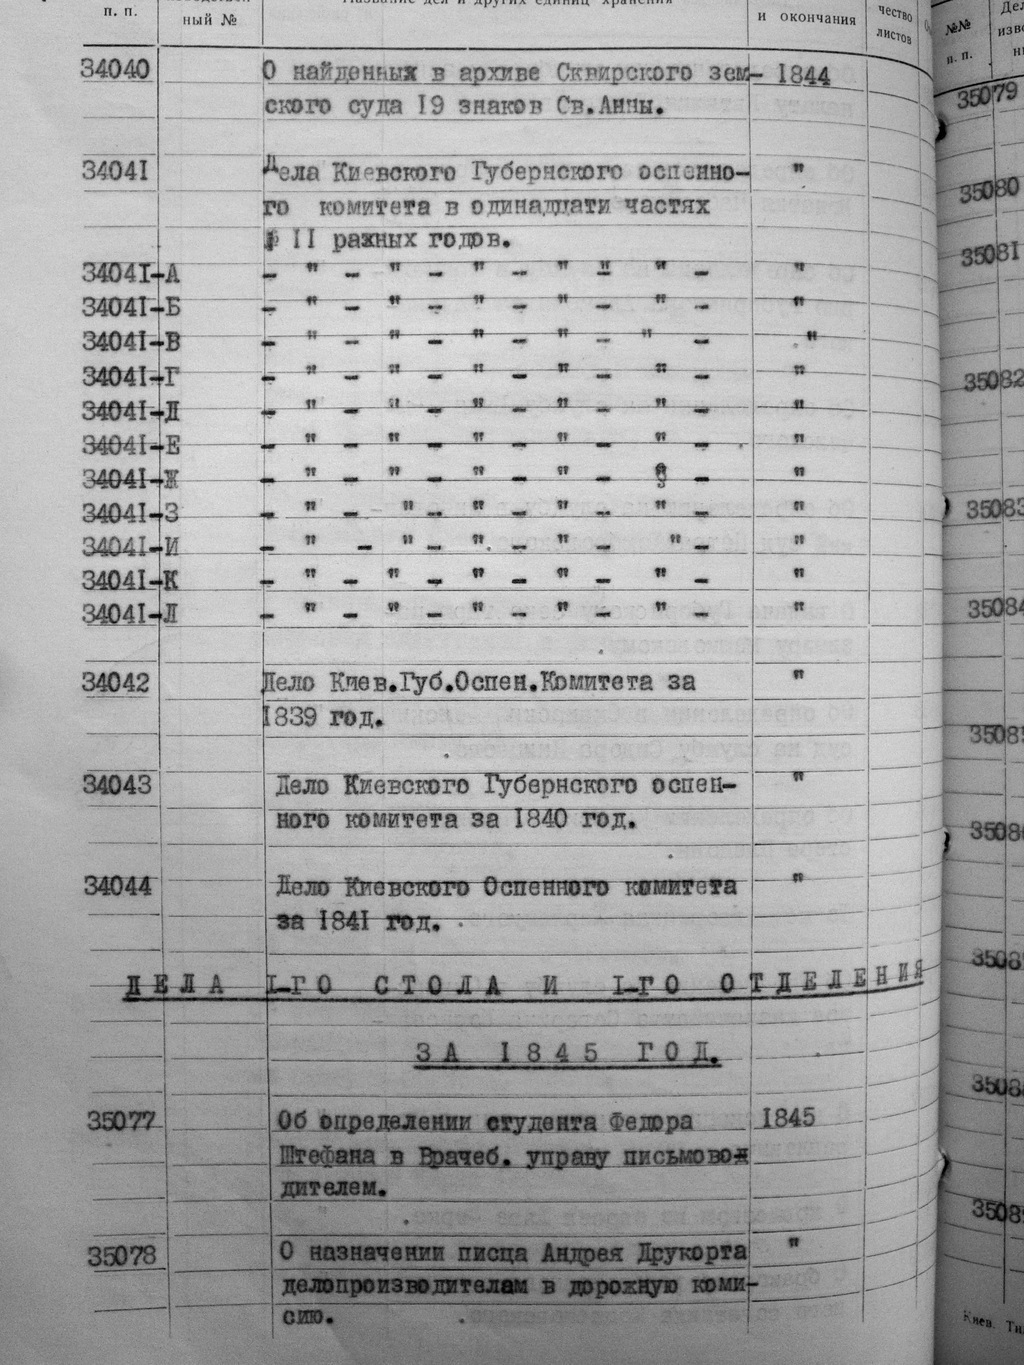 п. п.
ный №
Название дел и других единиц хранения
и окончания
чество
листов
34040 О найденных в архиве Сквирского зем- 1844
ского суда 19 знаков Св.Анны.
34041 Дела Киевского Губернского оспенно- "
го комитета в одинадцати частях
11 разных годов.
34041-А - " - " - " - " " " - "
34041-Б - " - " - " - " - " - "
34041-В - " - " - " - " - " - "
34041-Г - " - " - " - " - " - "
34041-Д - " - " - " - " - " - "
34041-Е - " - " - " - " - " - "
34041-Ж - " - " - " - " - " - "
34041-З - " - " - " - " - " - "
34041-И - " - " - " - " - " - "
34041-К - " - " - " - " - " - "
34041-Л - " - " - " - " - " - "
34042 Дело Киев.Губ.Оспен.Комитета за "
1839 год.
34043 Дело Киевского Губернского оспен- "
ного комитета за 1840 год.
34044 Дело Киевского Оспенного комитета "
за 1841 год.
ДЕЛА 1-ГО СТОЛА И 1-ГО ОТДЕЛЕНИЯ
ЗА 1845 ГОД.
35077 Об определении студента Федора 1845
Штефана в Врачеб. управу письмово-
дителем.
35078 О назначении писца Андрея Друкорта "
делопроизводителам в дорожную коми-
сию.
№№
п. п.
35079
35080
35081
35082
35083
35084
Киев.